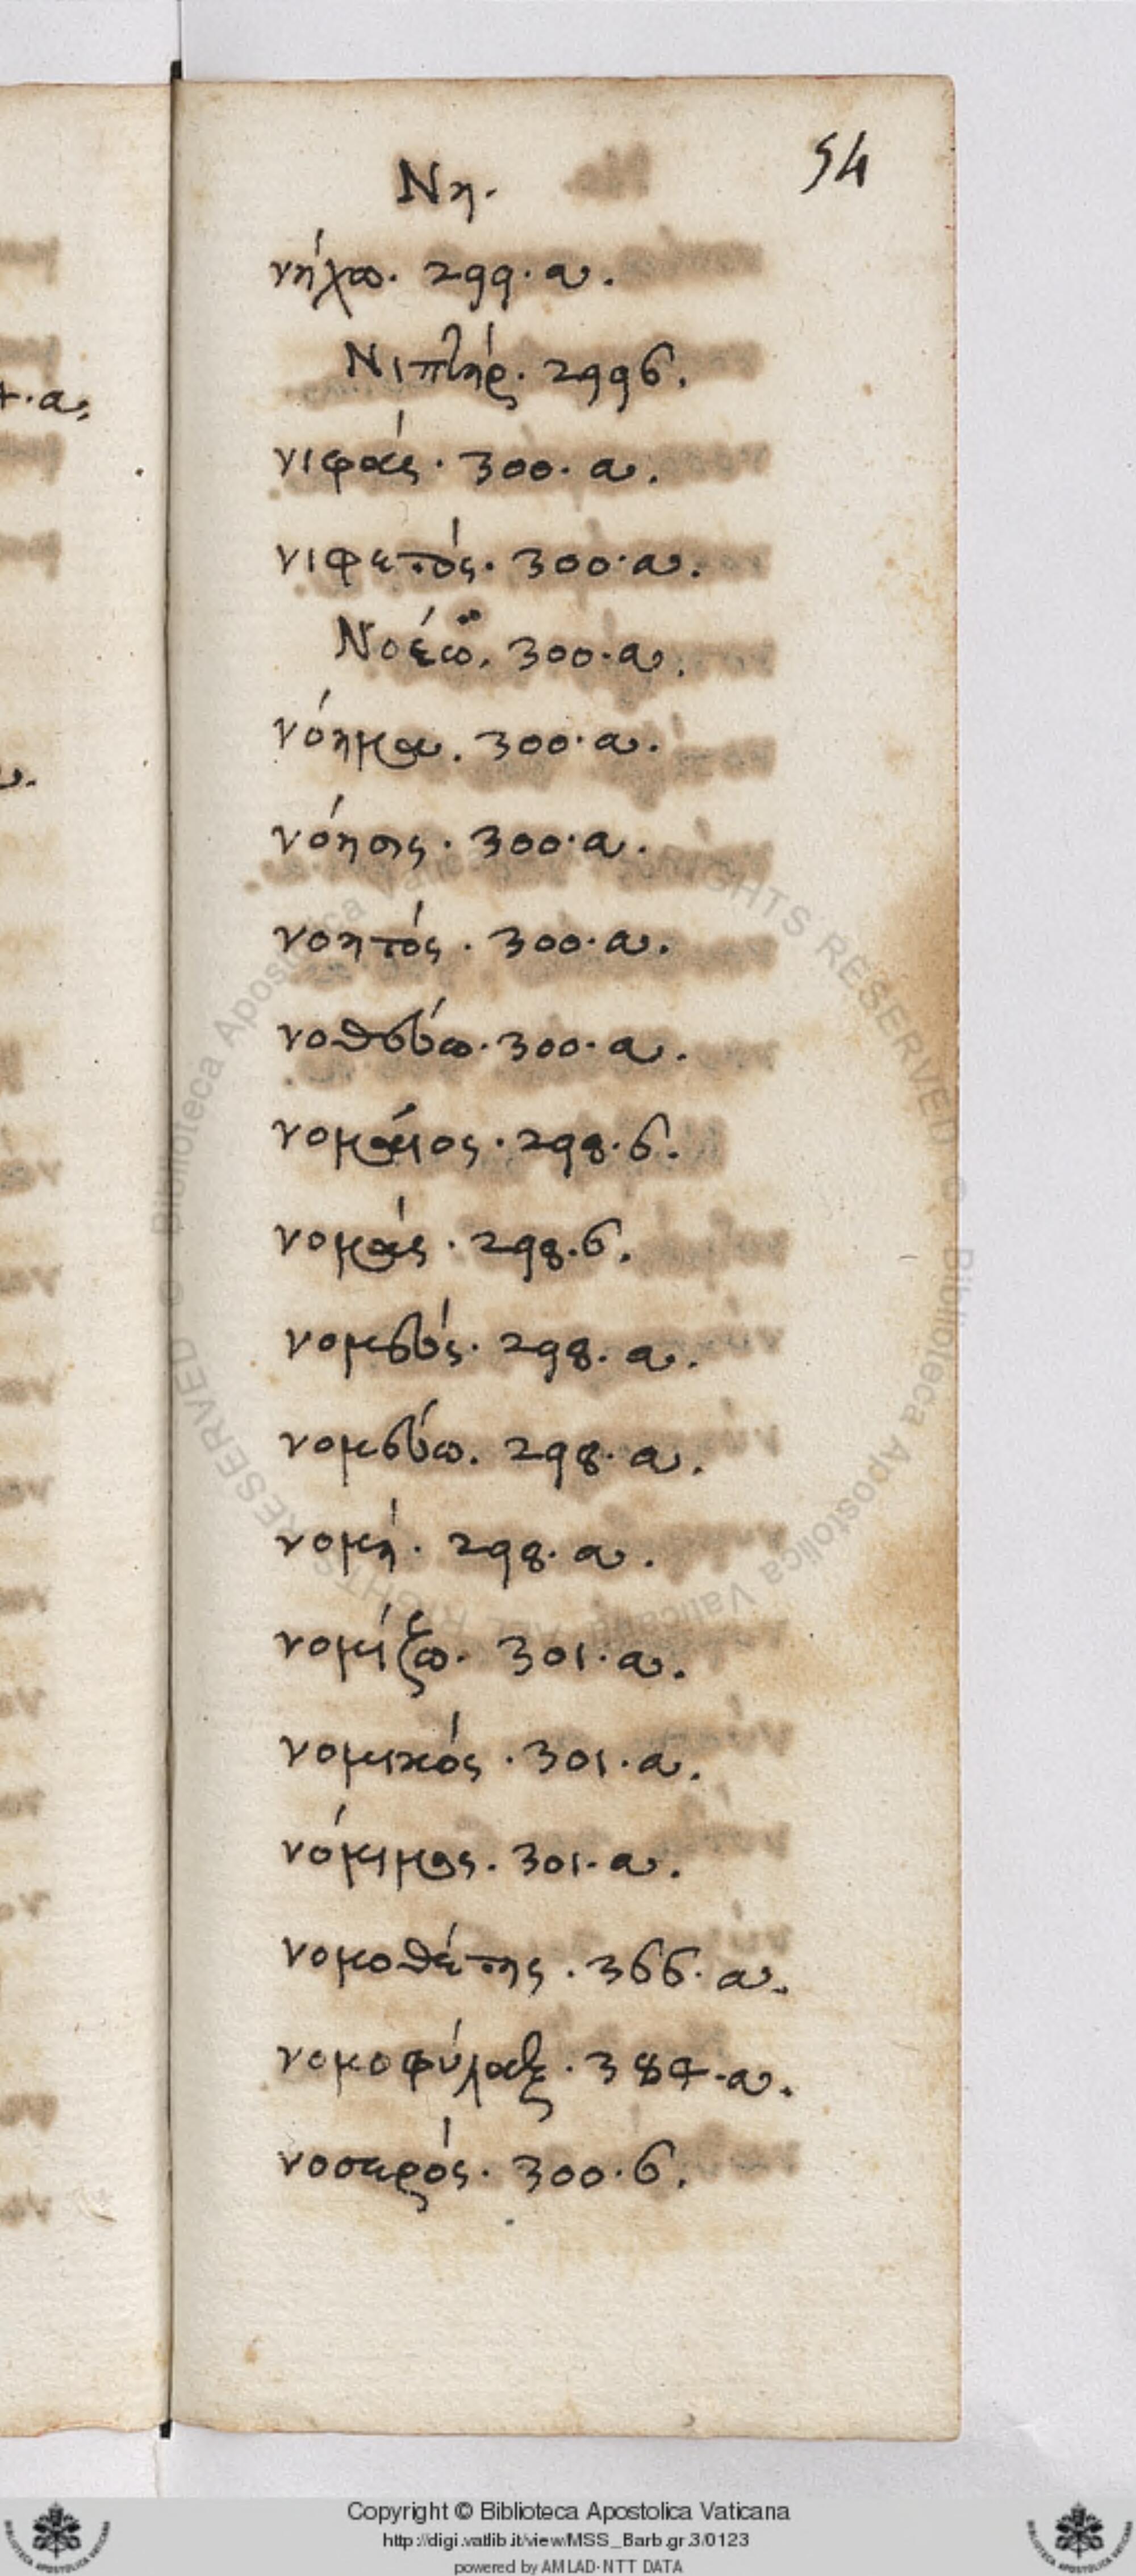 54
Νη.
νήχω. 299. α.
Νιπτήρ. 299 β.
νιφάς. 300. α.
νιφετός. 300. α.
Νοέω. 300. α.
νόημα. 300. α.
νόησις. 300. α.
νοητός. 300. α.
νοθεύω. 300. α.
νομαῖος. 298. β.
νομάς. 298. β.
νομεύς. 298. α.
νομεύω. 298. α.
νομή. 298. α.
νομίζω. 301. α.
νομικός. 301. α.
νόμιμος. 301. α.
νομοθέτης. 366. α.
νομοφύλαξ. 384. α.
νοσερός. 300. β.
Copyright © Biblioteca Apostolica Vaticana
http://digi.vatlib.it/view/MSS_Barb.gr.3/0123
powered by AMLAD-NTT DATA